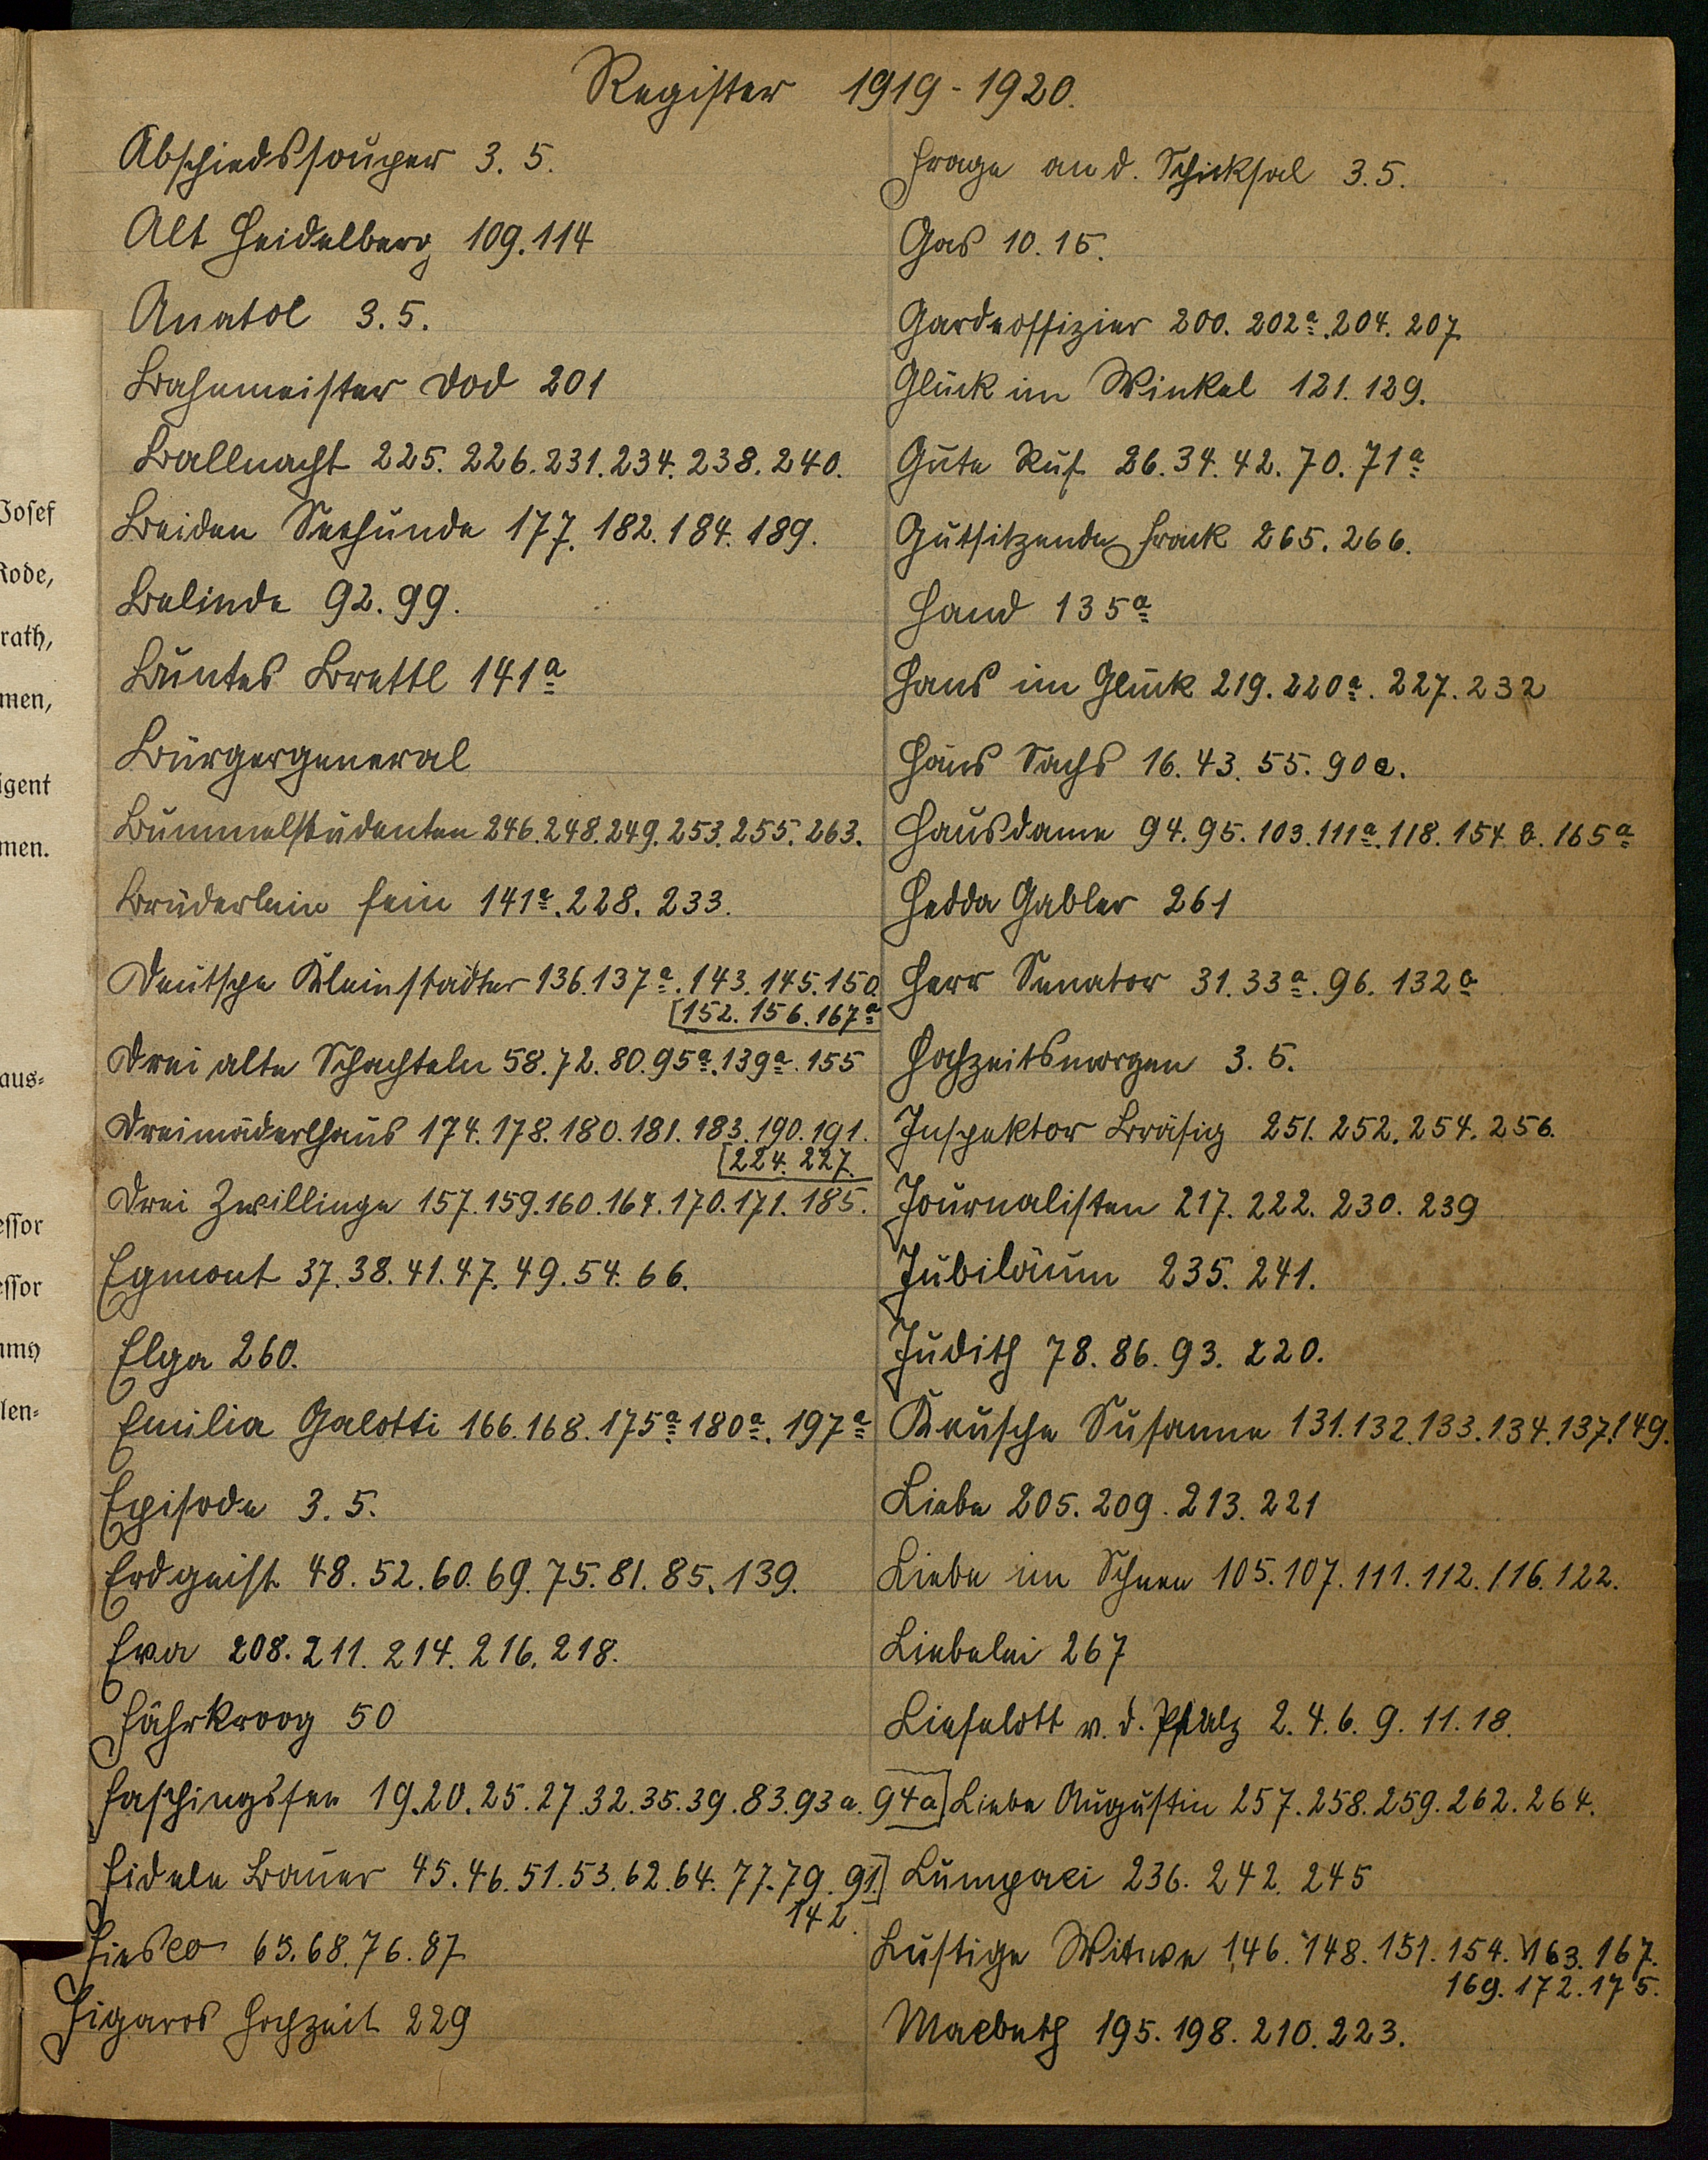 Register 1919-1920.
Abschiedssouper 3. 5.
Alt Heidelberg 109. 114
Anatol 3. 5.
Bahnmeister Dod 201
Ballnacht 225. 226. 231. 234. 238. 240.
Beiden Seehunde 177. 182. 184. 189.
Belinde 92. 99.
Buntes Brettl 141a
Bürgergeneral
Bummelstudenten 246. 248. 249. 253. 255. 263.
Brüderlein fein 141a. 228. 233.
Deutsche Kleinstädter 136. 137a. 143. 145. 150.
[152. 156. 167a
Drei alte Schachteln 58. 72. 80. 95a. 139a. 155
Dreimäderlhaus 174. 178. 180. 181. 183. 190. 191.
[224. 227.
Drei Zwillinge 157. 159. 160. 164. 170. 171. 185.
Egmont 37. 38. 41. 47. 49. 54. 66.
Elga 260.
Emilia Galotti 166. 168. 175a. 180a. 197a
Episode 3. 5.
Erdgeist 48. 52. 60. 69. 75. 81. 85. 139.
Eva 208. 211. 214. 216. 218.
Fährkroog 50
Faschingsfee 19. 20. 25. 27. 32. 35. 39. 83. 93a. 94a]
Fidele Bauer 45. 46. 51. 53. 62. 64. 77. 79. 91.]
142.
Fiesco 65. 68. 76. 87
Figaros Hochzeit 229
Frage an d. Schicksal 3. 5.
Gas 10. 15.
Gardeoffizier 200. 202a. 204. 207
Glück im Winkel 121. 129.
Gute Ruf 26. 34. 42. 70. 71a
Gutsitzende Frack 265. 266.
Hand 135a
Hans im Glück 219. 220a. 227. 232
Hans Sachs 16. 43. 55. 90a.
Hausdame 94. 95. 103. 111a. 118. 154. 165a
Hedda Gabler 261
Herr Senator 31. 33a. 96. 132a
Hochzeitsmorgen 3. 5.
Inspektor Bräsig 251. 252. 254. 256.
Journalisten 217. 222. 230. 239
Jubiläum 235. 241.
Judith 78. 86. 93. 220.
Keusche Susanne 131. 132. 133. 134. 137. 149.
Liebe 205. 209. 213. 221
Liebe im Schnee 105. 107. 111. 112. 116. 122.
Liebelei 267
Lieselott v. d. Pfalz 2. 4. 6. 9. 11. 18.
Liebe Augustin 257. 258. 259. 262. 264.
Lumpaci 236. 242. 245
Lustige Witwe 146. 148. 151. 154. 163. 167.
169. 172. 175.
Macbeth 195. 198. 210. 223.
Josef
Rode,
rath,
men,
igent
men.
aus-
essor
essor
mmy
len-